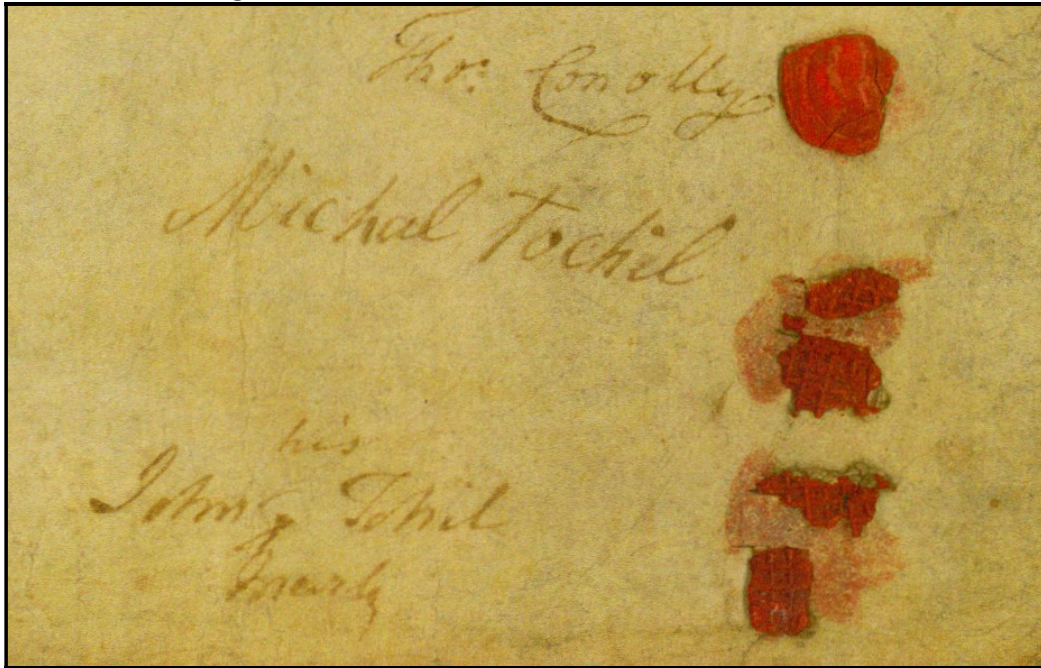 Thos. Conolly
Michal Tochil
his
John Tohil
mark